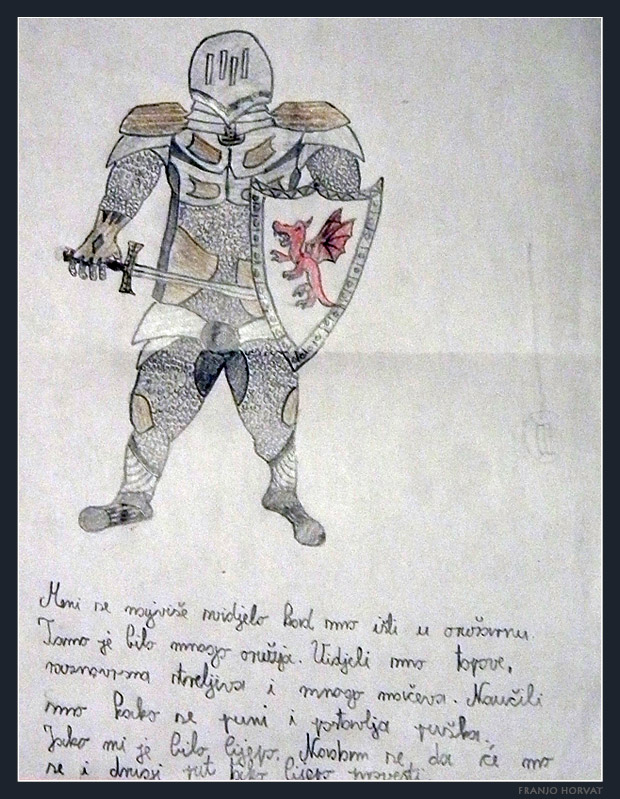 Meni se najviše svidjelo kad smo išli u oružarnu.
Tamo je bilo mnogo oružja. Vidjeli smo topove,
raznovrsna streljiva i mnogo mačeva. Naučili
smo kako se puni i postavlja puška.
Jako mi je bilo lijepo. Nadam se, da će mo
se i drugi put tako lijepo provesti
FRANJO HORVAT